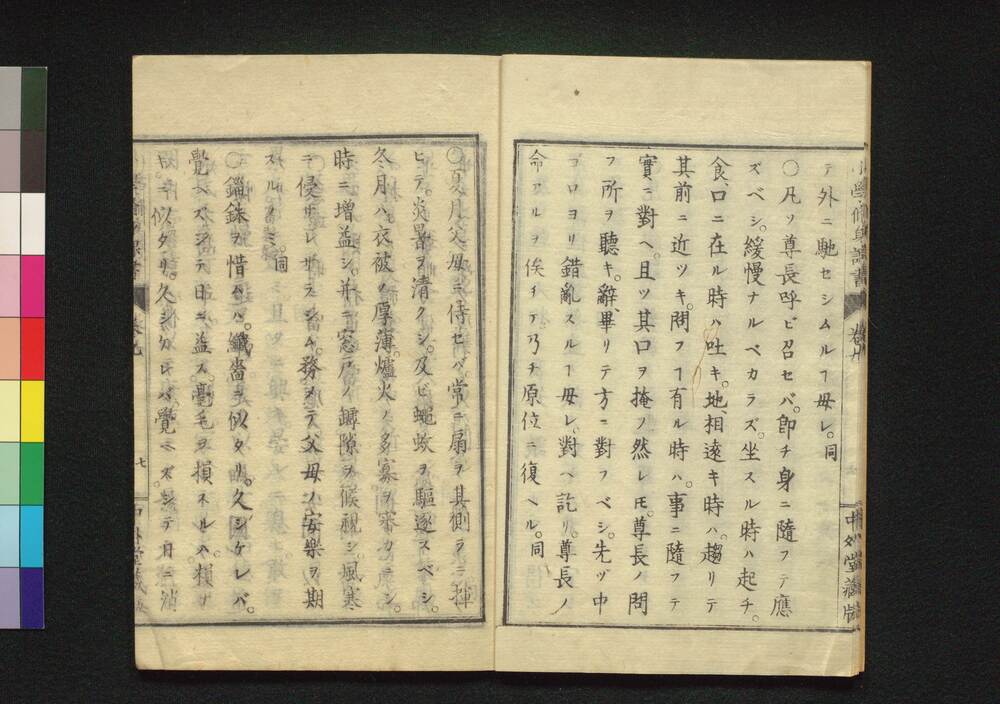 小學修身訓書
卷九
中外堂藏版
テ外ニ馳セシムルヿ毋レ。同
〇凡ソ尊長呼ビ召セバ。卽チ身ニ隨フテ應
ズベシ。緩慢ナルベカラズ。坐スル時ハ起チ。
食、口ニ在ル時ハ吐キ。地、相遠キ時ハ。趨リテ
其前ニ近ツキ。問フヿ有ル時ハ。事ニ隨フテ
實ニ對ヘ。且ツ其口ヲ掩ノ然レ𪜈。尊長ノ問
フ所ヲ聽キ。辭、畢リテ方ニ對フベシ。先ヅ中
ゴロヨリ錯亂スルヿ毋レ。對ヘ訖リ。尊長ノ
命アルヲ俟チテ乃チ原位ニ復ヘル。同
〇夏月父母ニ侍セバ。常ニ扇ヲ其側ラニ揮
ヒテ。炎暑ヲ清クシ。及ビ蠅蚊ヲ驅逐スベシ。
冬月ハ衣被ノ厚薄。爐火ノ多寡ヲ審カニシ。
時ニ増益シ。并ニ窓戸ノ罅隙ヲ候視シ。風寒
ニ侵サレザラシム。務メテ父母ノ安樂ヲ期
スルノミ。同
〇錙銖ヲ惜ハハ。蠶齒ニ似タリ。久シケレバ。
覺ヘズシテ日ニ益ス。毫毛ヲ損ネルハ。
ニ似タリ。久シケレバ覺ヘズシテ日ニ消
七